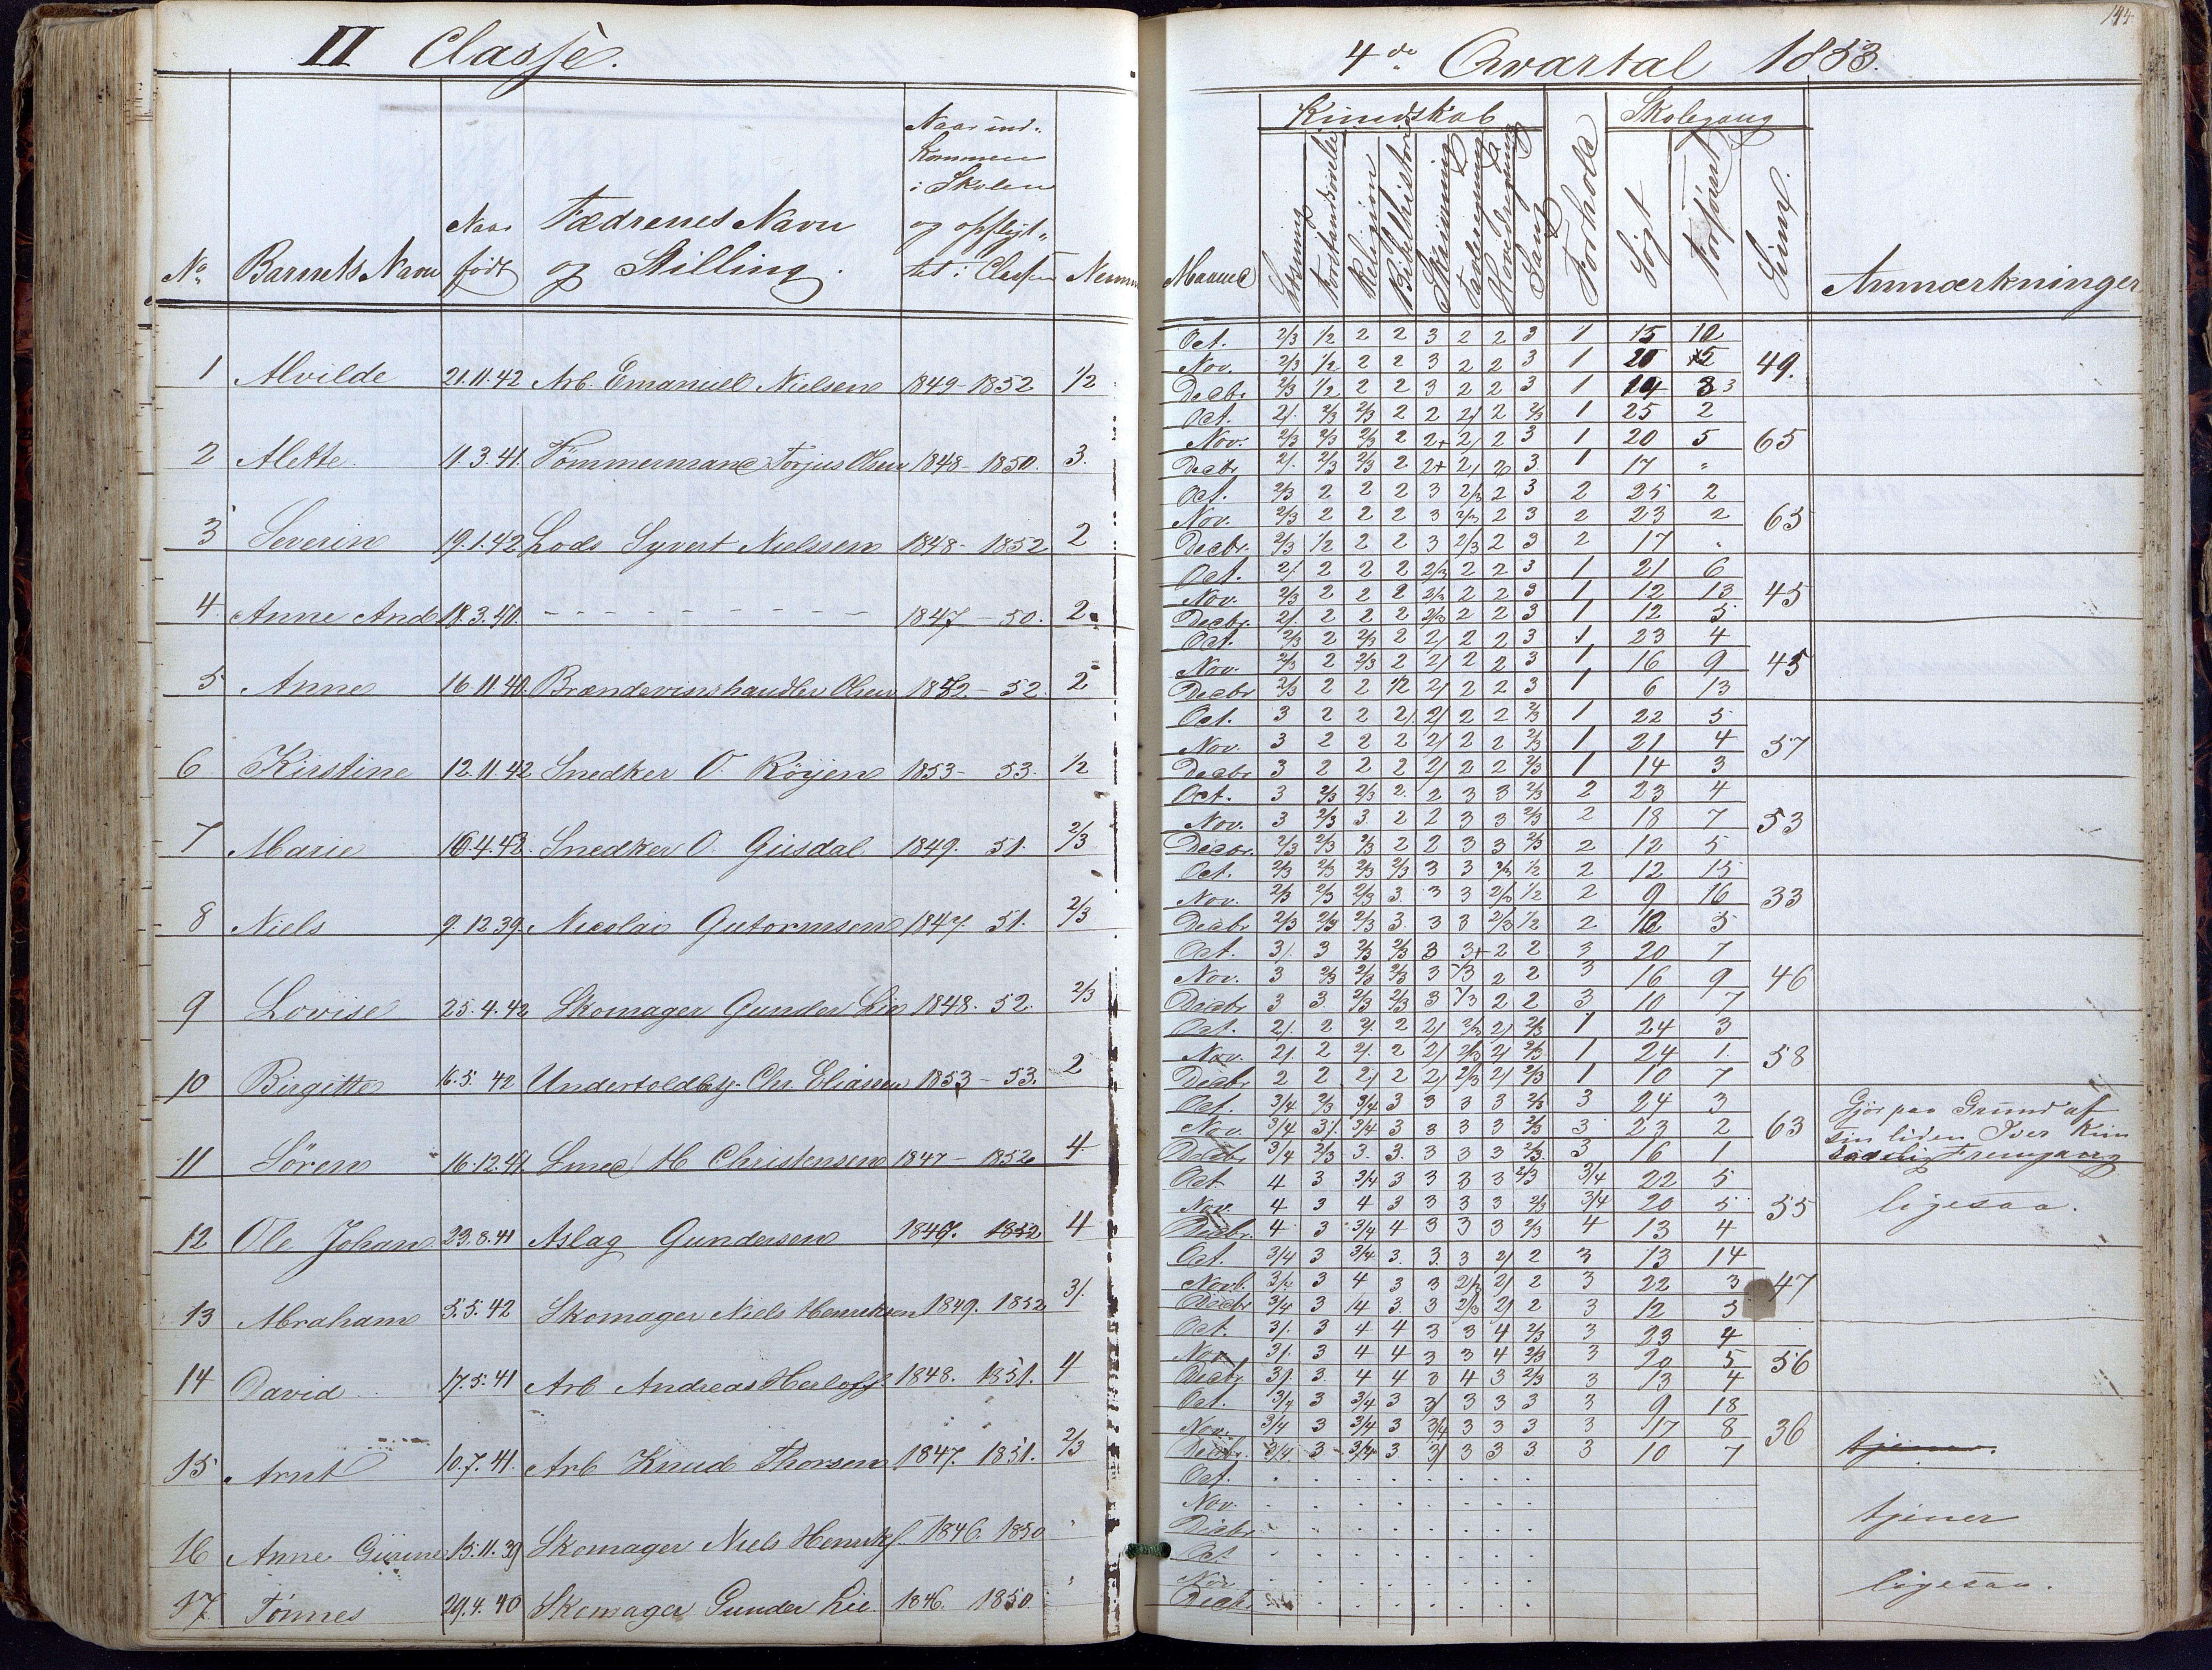 II Classe.
No. Barnets Navn Naar født Fædrenes Navn og Stilling. Naar ind-kommen i Skolen og opflyt-tet i Classen
1 Alvilde 21.11.42 Arb. Emanuel Nielsen 1849-1852 1/2
2 Alette 11.3.41. Tömmermand Torjus Olsen 1848-1850. 3.
3 Severin 19.1.42 Lods Syvert Nielssen 1848-1852 2
4 Anne And 18.3.40. - - - - - - - - - 1847-50. 2.
5 Anne 16.11.40. Brændevinshandler Olsen 1852-52. 2
6 Kirstine 12.11.42 Snedker O. Röyen 1853-53. 1/2
7 Marie Snedker O. 1849. 51. 2/3
8 Niels 9.12.39. Nicolai Gutormsen 1847. 51. 2/3
9 Lovise 25.4.42 Skomager Gunder Lie 1848. 52. 2/3
10 Birgitte 16.5.42 Undertoldbetj. Chr. Eliassen 1853-53. 2
11 Sören 16.12.41 Smed H. Christensen 1847-1852 4.
12 Ole Johan 23.8.41 Aslag Gundersen 1847. 1852 4
13 Abraham 5.5.42 Skomager Niels Henriksen 1849. 1852 3/.
14 David 17.5.41 Arb Andreas Herloff. 1848. 1851. 4
15 Arnt 10.7.41. Arb Knud Thorsen 1847. 1851. 2/3
16 Anne 15.11.39 Skomager Niels Henrikf. 1846. 1850
17. Tönnes 29.4.40 Skomager Gunder Lie. 1846. 1850.
144
4de Qvartal 1853.
Kundskab Skolegang
Maaned Læsning Forstandsøvelse Religion Bibelhistorie Skrivning Tavleregning Hovedregning Sang Forhold Søgt Forsømt Anmærkninger
Oct. 2/3 1/2 2 2 3 2 2 3 1 15 10
Nov. 2/3 1/2 2 2 3 2 2 3 1 20 5 49.
Decbr. 2/3 1/2 2 2 3 2 2 3 1 14 3
Oct. 2/. 2/3 2/3 2 2 2/ 2 2/3 1 25 2
Nov. 2/3 2/3 2/3 2 2+ 2/ 2 3 1 20 5 65
Decbr. 2/. 2/3 2/3 2 2+ 2/ 3. 1 17 "
Oct. 2/3 2 2 2 3 2/3 2 3 2 25 2
Nov. 2/3 2 2 2 3 2/3 2 3 2 23 2 65
Decbr. 2/3 1/2 2 2 3 2/3 2 3 2 17 "
Oct. 2/. 2 2 2 2/3 2 2 3 1 21 6
Nov. 2/3 2 2 2 2/3 2 2 3 1 12 13 45
Decbr. 2/. 2 2 2 2/3 2 2 3 1 12 5
Oct. 2/3 2 2/3 2 2/ 2 2 3 1 23 4
Nov. 2/3 2 2/3 2 2/ 2 2 3 1 16 9 45
Decbr. 2/3 2 2 1/2 2/ 2 2 3 1 6 13
Oct. 3 2 2 2/. 2/ 2 2 2/3 1 22 5
Nov. 3 2 2 2 2/ 2 2 2/3 1 21 4 57
Decbr. 3 2 2 2 2/ 2 2 2/3 1 14 3
Oct. 3 2/3 2/3 2. 2 3 3 2/3 2 23 4
Nov. 3 2/3 3. 2 2 3 3 2/3 2 18 7 53
Decbr. 2/3 2/3 2/3 2 2 3 3 2/3 2 12 5
Oct. 2/3 2/3 2/3 2/3 3 3 2/3 1/2 2 12 15
Nov. 2/3 2/3 2/3 3. 3 3 2/3 1/2 2 9 16 33
Decbr. 2/3 2/3 2/3 3. 3 3 2/3 1/2 2 5
Oct. 3/. 3 2/3 2/3 3 3+ 2 2 3 20 7
Nov. 3 2/3 2/3 2/3 3 2 2 3 16 9 46
Decbr. 3 3. 2/3 2/3 3 2 2 3 10 7
Oct. 2/. 2 2/. 2 2/ 2/3 2/ 2/3 1 24 3
Nov. 2/. 2 2/. 2 2/ 2/3 2/ 2/3 1 24 1. 58
Decbr. 2 2 2/ 2 2/ 2/3 2/ 2/3 1 10 7
Oct. 3/4 2/3 3/4 3 3 3 3 2/3 3 24 3 Gjör paa Grund af
Nov. 3/4 3/. 3/4 3 3 3 3 2/3 3 23 2 63 sin liden Iver kun
Decbr. 3/4 2/3 3. 3. 3 3 3 2/3. 3 16 1 Fremgang
Oct. 4 3 3/4 3 3 3 3 2/3 3/4 22 5
Nov. 4 3 4 3 3 3 3 2/3 3/4 20 5 55 ligesaa.
Decbr. 4 3 3/4 4 3 3 3 2/3 4 13 4
Oct. 3/4 3 3/4 3. 3. 3 2/ 2 3 13 14
Novb. 3/4 3 4 3 3 2/3 2/ 2 3 22 3 47
Decbr. 3/4 3 4 3. 3 2/3 2/ 2 3 12 5
Oct. 3/. 3 4 4 3 3 4 2/3 3 23 4
Nov. 3/. 3 4 4 3 3 4 2/3 3 20 5 56
Decbr. 3/. 3. 4 4 3 4 3 2/3 3 13 4
Oct. 3/4 3 3/4 3 3/ 3 3 3 3 9 18
Nov. 3/4 3 3/4 3 3/4 3 3 3 3 17 8 36
Decbr. 3/4 3 3/4 3 3/ 3 3 3 3 10 7 tjener.
Oct.
Nov. tjener
Decbr.
Oct.
Nov. ligesaa.
Decbr.